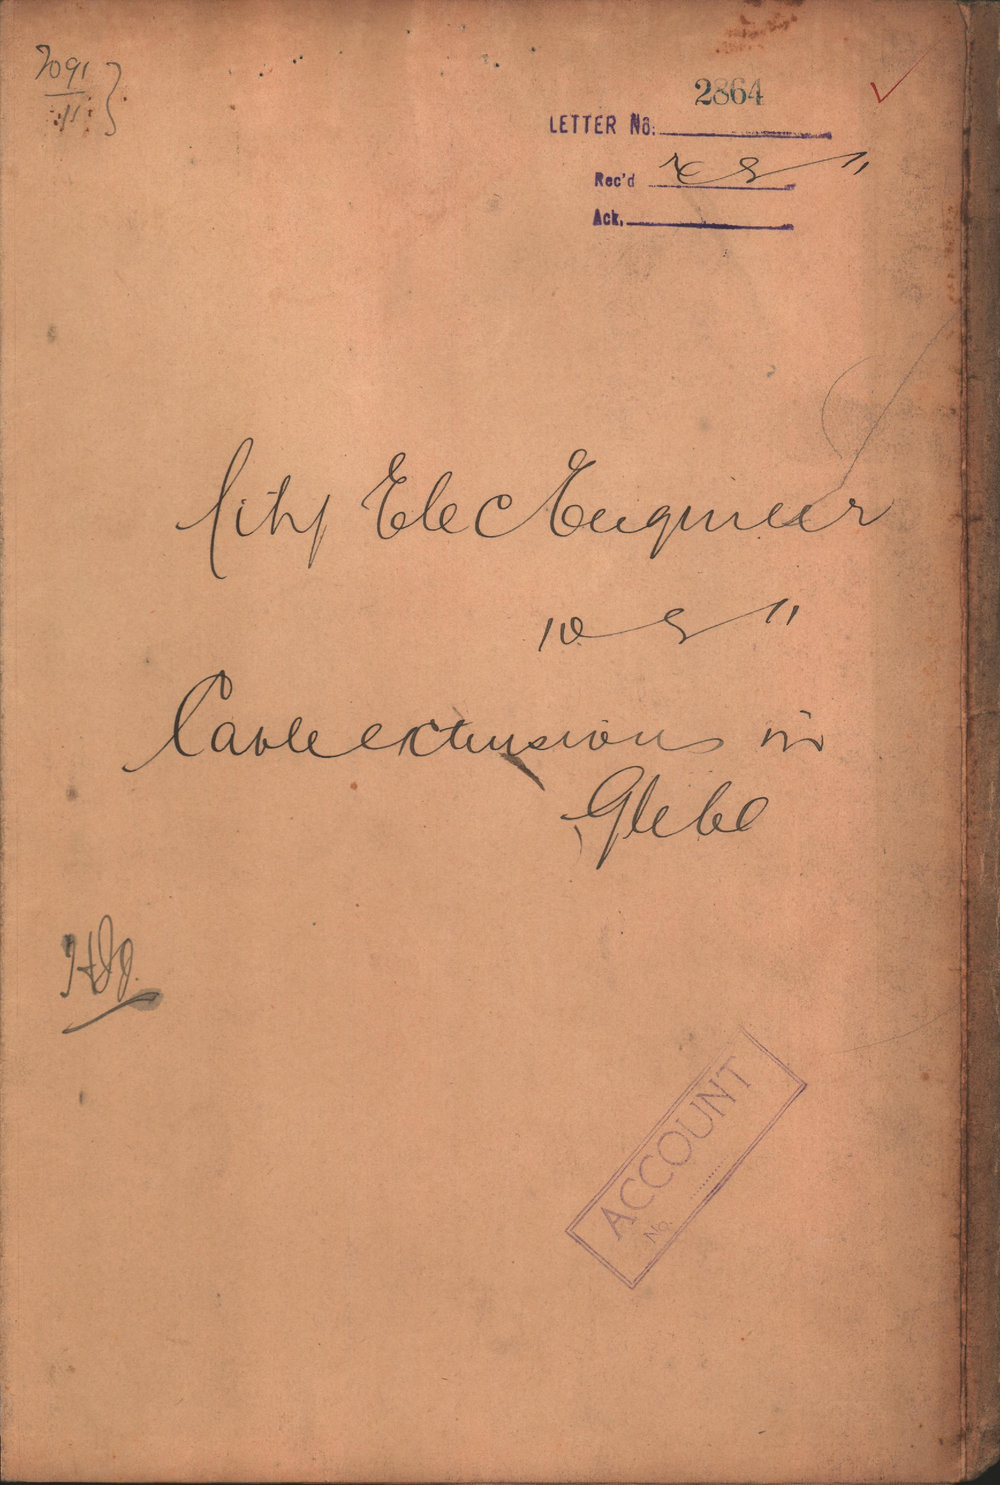 2091
11
2864
LETTER No.
Rec'd 8 11
Ack.
City Elec Engineer
10 8 11
Cable extensions in
Glebe
ACCOUNT
No.